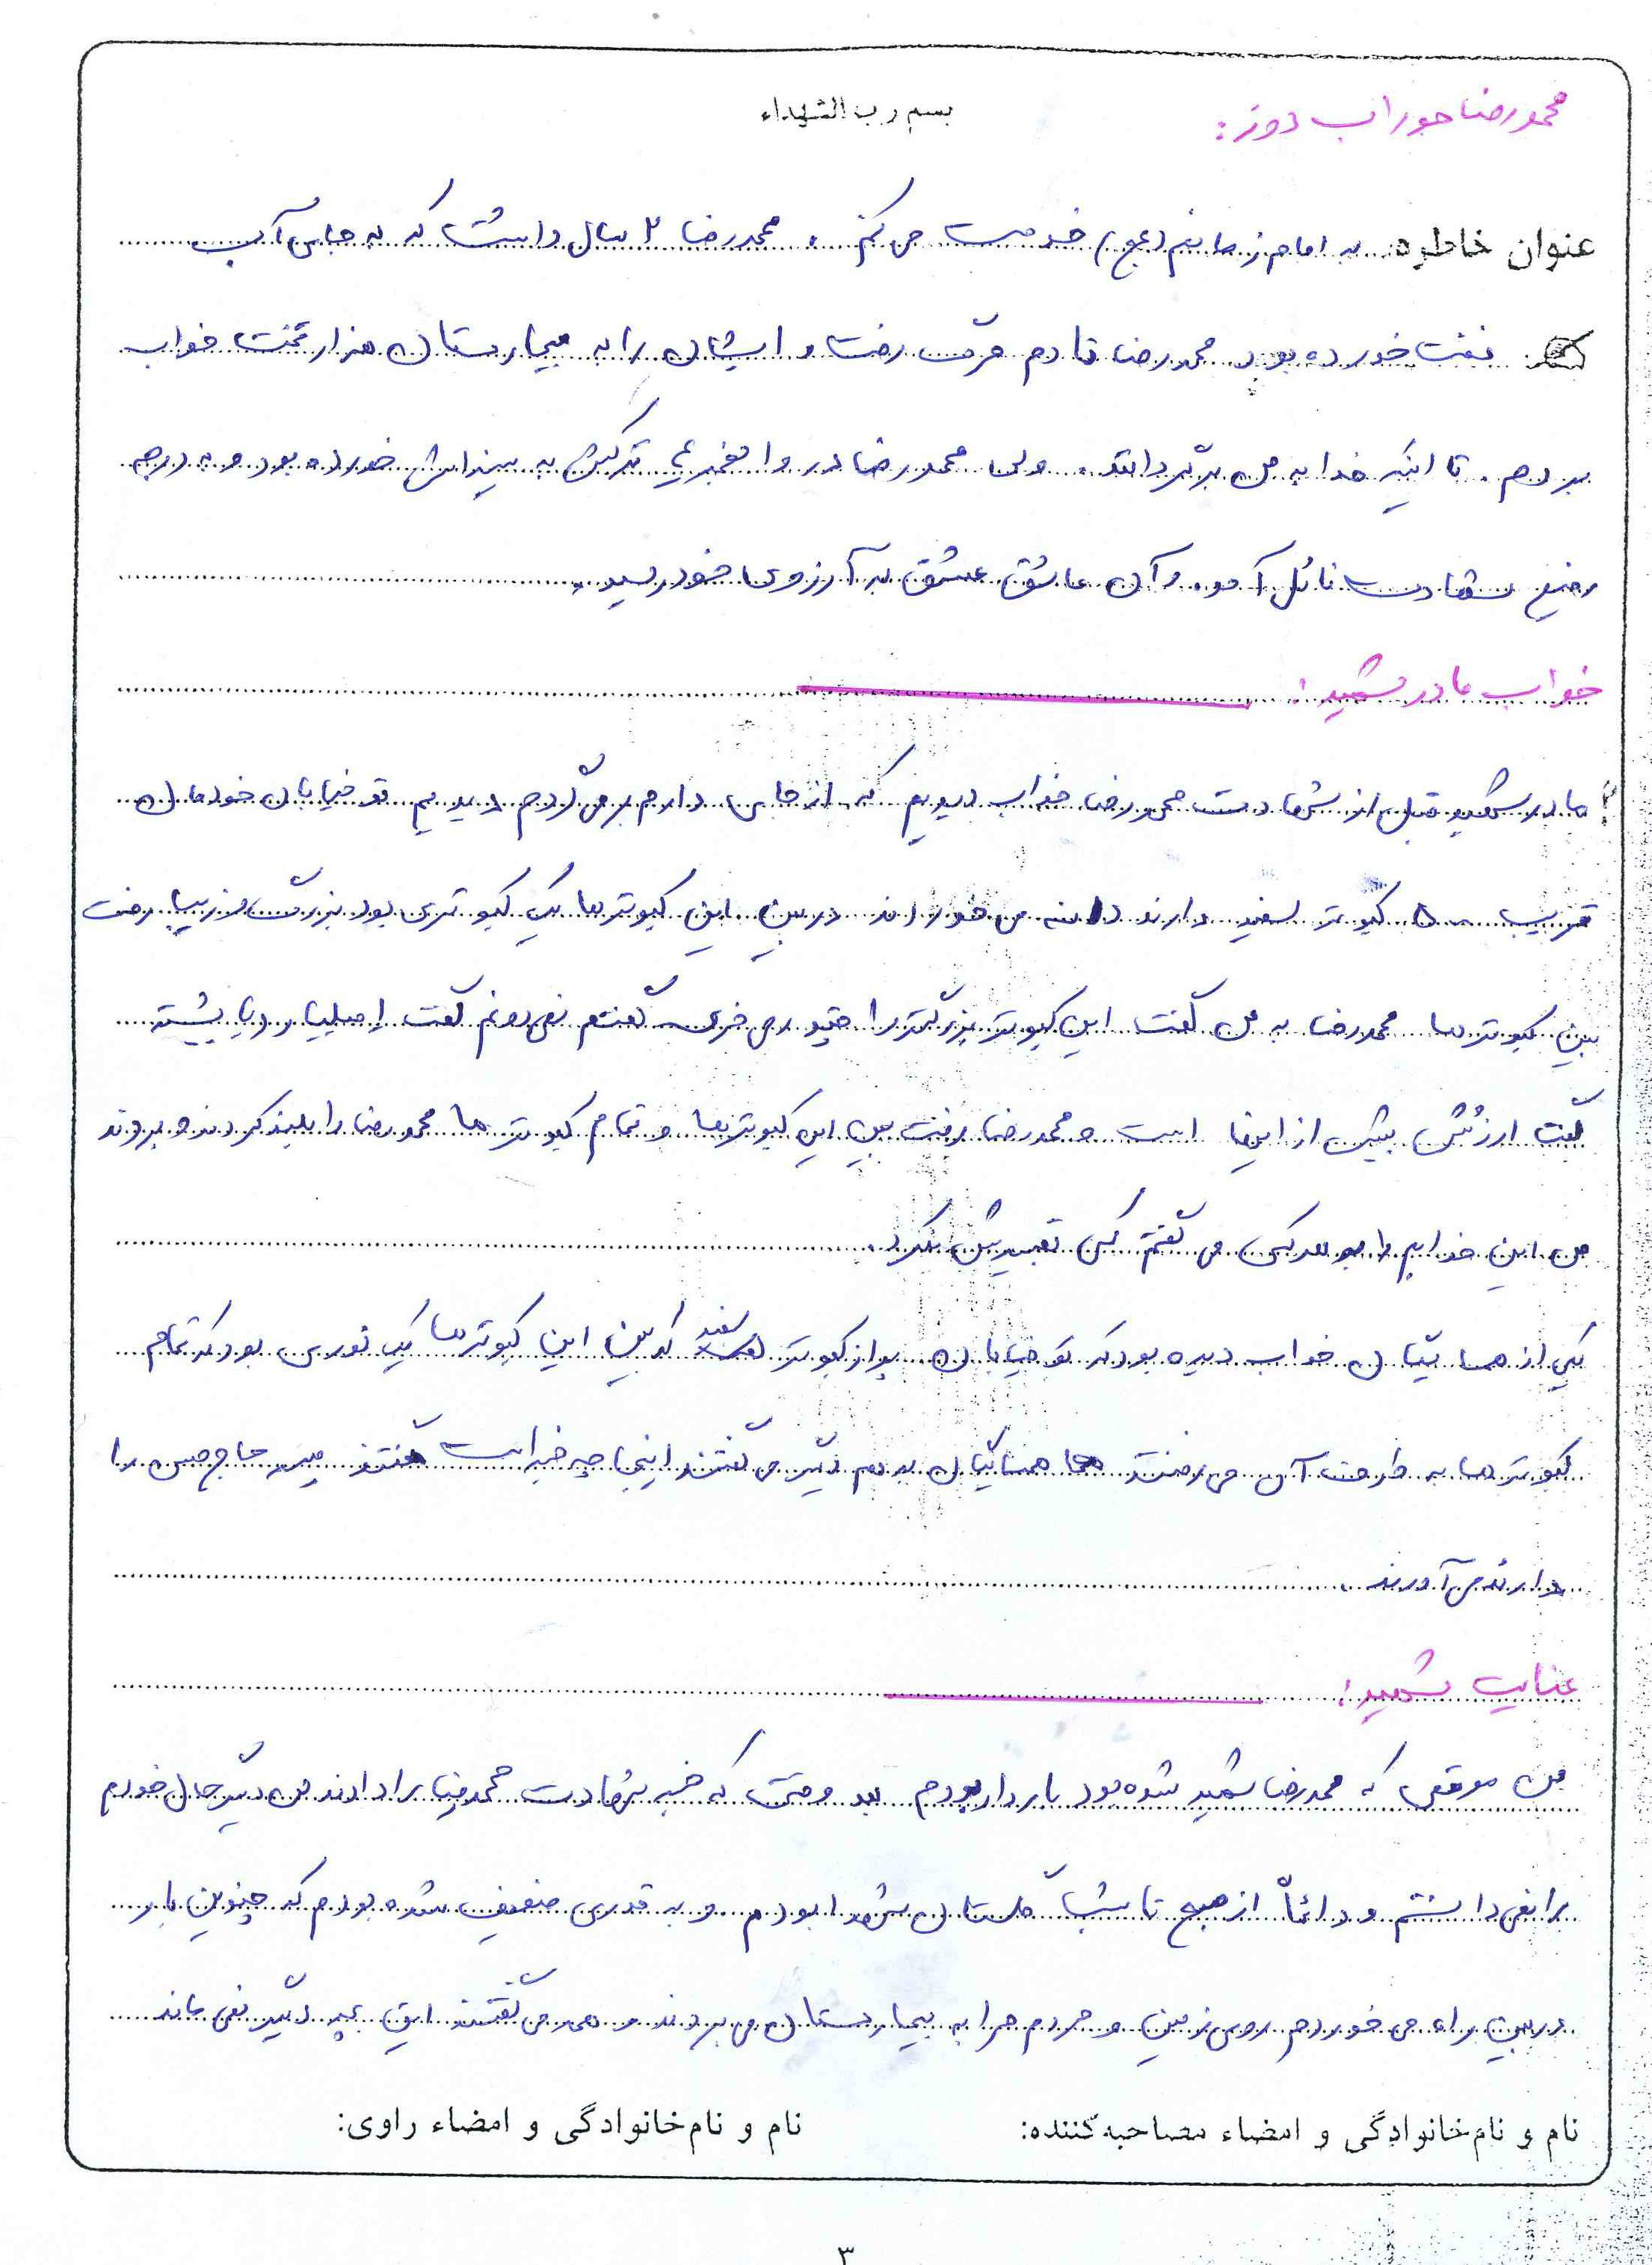 محمدرضا جوراب دوز:
بسم رب الشهداء
عنوان خاطره: به امام زمانیم (عج) خدمت می کنم. محمدرضا ۲ سال داشت که به جای آب
نفت خورده بود محمدرضا تا دم مرگ رفت و ایشان را به بیمارستان هزار تخت خواب
بردم. تا اینکه خدا به من برگرداند. ولی محمدرضا در والفجر ۴ ترکش به سینه اش خورده بود و به درجه
رفیع شهادت نائل آمد. و آن عاشق عشق به آرزوی خود رسید.
خواب مادر شهید:
مادر شهید قبل از شهادت محمدرضا خواب دیدیم که از جایی دارم برمی گردم دیدیم تو خیابان خودمان
قریب ۵۰۰ کبوتر سفید دارند دانه می خورند در بین این کبوترها یک کبوتری بود بزرگ و زیبا رفت
بین کبوترها محمدرضا به من گفت این کبوتر بزرگتر را چقدر می خری گفتم نمی دونم گفت
گفت ارزشش بیش از اینها است و محمدرضا رفت بین این کبوترها و تمام کبوتر ها محمدرضا را بلند کردند و بردند
من این خوابم را به هر کسی می گفتم کسی تعبیرش نکرد.
یکی از همسایگان خواب دیده بود که تو خیابان پر از کبوتر سفید که بین این کبوترها یک نوری بود که تمام
کبوترها به طرف آن می رفتند همسایگان به هم دیگر می گفتند اینجا چه خبر است گفتند پسر حاج حسن را
دارند می آورند.
عنایت شهید:
من موقعی که محمدرضا شهید شده بود باردار بودم بعد وقتی که خبر شهادت محمدرضا را دادند من دیگر حال خودم
را نمی دانستم و دائماً از صبح تا شب گلستان شهدا بودم و به قدری ضعیف شده بودم که چندین بار
در بین راه می خوردم روی زمین و مردم مرا به بیمارستان می بردند و همه می گفتند این بچه دیگر نمی ماند
نام و نام خانوادگی و امضاء مصاحبه کننده:
نام و نام خانوادگی و امضاء راوی:
۳